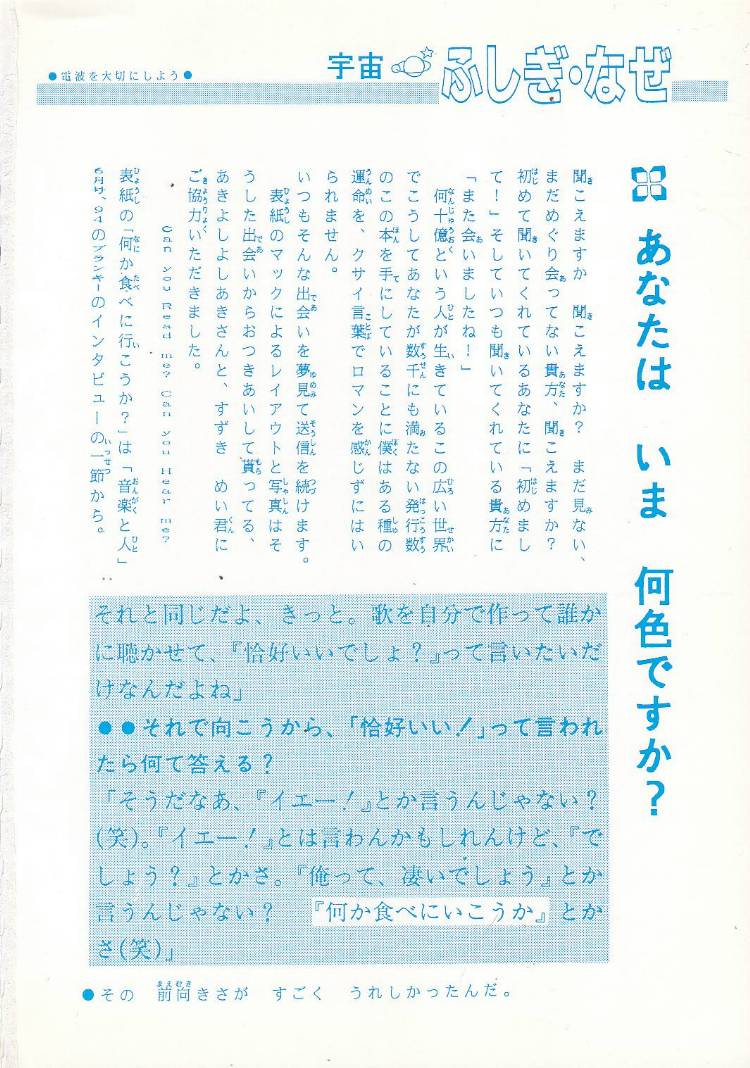 ●電波を大切にしよう●
宇宙 ふしぎ・なぜ
あなたは いま 何色ですか?
聞こえますか 聞こえますか? まだ見ない、
まだめぐり会ってない貴方、聞こえますか?
初めて聞いてくれているあなたに「初めまし
て!」そしていつも聞いてくれている貴方に
「また会いましたね!」
何十億という人が生きているこの広い世界
でこうしてあなたが数千にも満たない発行数
のこの本を手にしていることに僕はある種の
運命を、クサイ言葉でロマンを感じずにはい
られません。
いつもそんな出会いを夢見て送信を続けます。
表紙のマックによるレイアウトと写真はそ
うした出会いからおつきあいして貰ってる、
あきよしよしあきさんと、すずき めい君に
ご協力いただきました。
Can you Read me? Can you Hear me?
表紙の「何か食べに行こうか?」は「音楽と人」
6月号、94のブランキーのインタビューの一節から。
それと同じだよ、きっと。歌を自分で作って誰か
に聴かせて、『恰好いいでしょ?』って言いたいだ
けなんだよね」
●●それで向こうから、「恰好いい!」って言われ
たら何て答える?
「そうだなあ、『イエー!』とか言うんじゃない?
(笑)。『イエー!』とは言わんかもしれんけど、『で
しょう?』とかさ。『俺って、凄いでしょう』とか
言うんじゃない? 『何か食べにいこうか』とか
さ(笑)」
●その 前向きさが すごく うれしかったんだ。